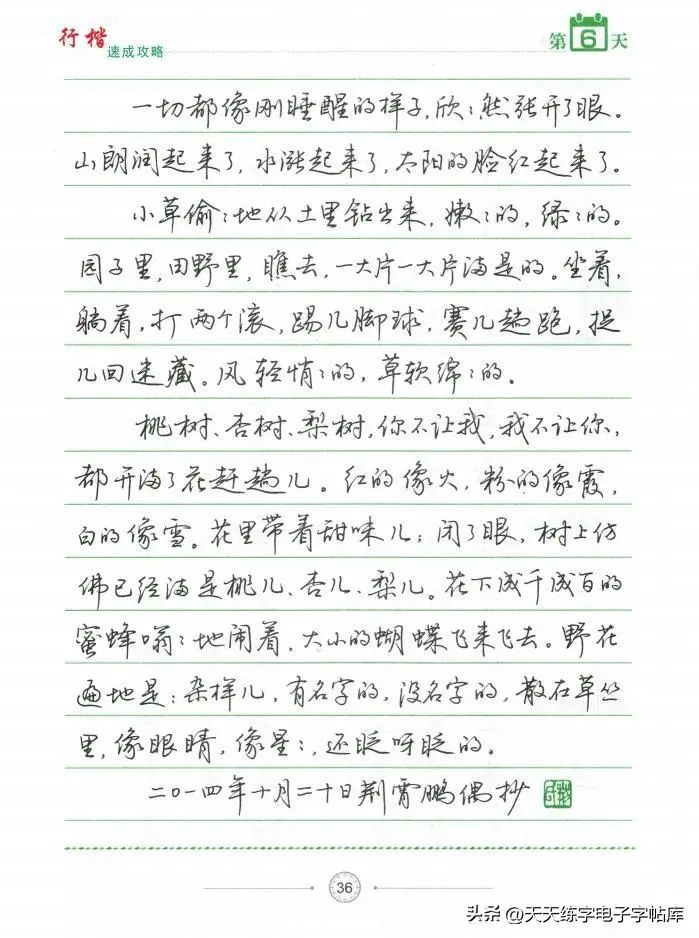 行楷 速成攻略
第6天
一切都像刚睡醒的样子,欣:然张开了眼。
山朗润起来了,水涨起来了,太阳的脸红起来了。
小草偷:地从土里钻出来,嫩:的,绿:的。
园子里,田野里,瞧去,一大片一大片满是的。坐着,
躺着,打两个滚,踢几脚球,赛几趟跑,捉
几回迷藏。风轻悄:的,草软绵:的。
桃树、杏树、梨树,你不让我,我不让你,
都开满了花赶趟儿。红的像火,粉的像霞,
白的像雪。花里带着甜味儿;闭了眼,树上仿
佛已经满是桃儿、杏儿、梨儿。花下成千成百的
蜜蜂嗡:地闹着,大小的蝴蝶飞来飞去。野花
遍地是:杂样儿,有名字的,没名字的,散在草丛
里,像眼睛,像星:,还眨呀眨的。
二〇一四年十月二十日荆霄鹏偶抄
36
头条 @天天练字电子字帖库